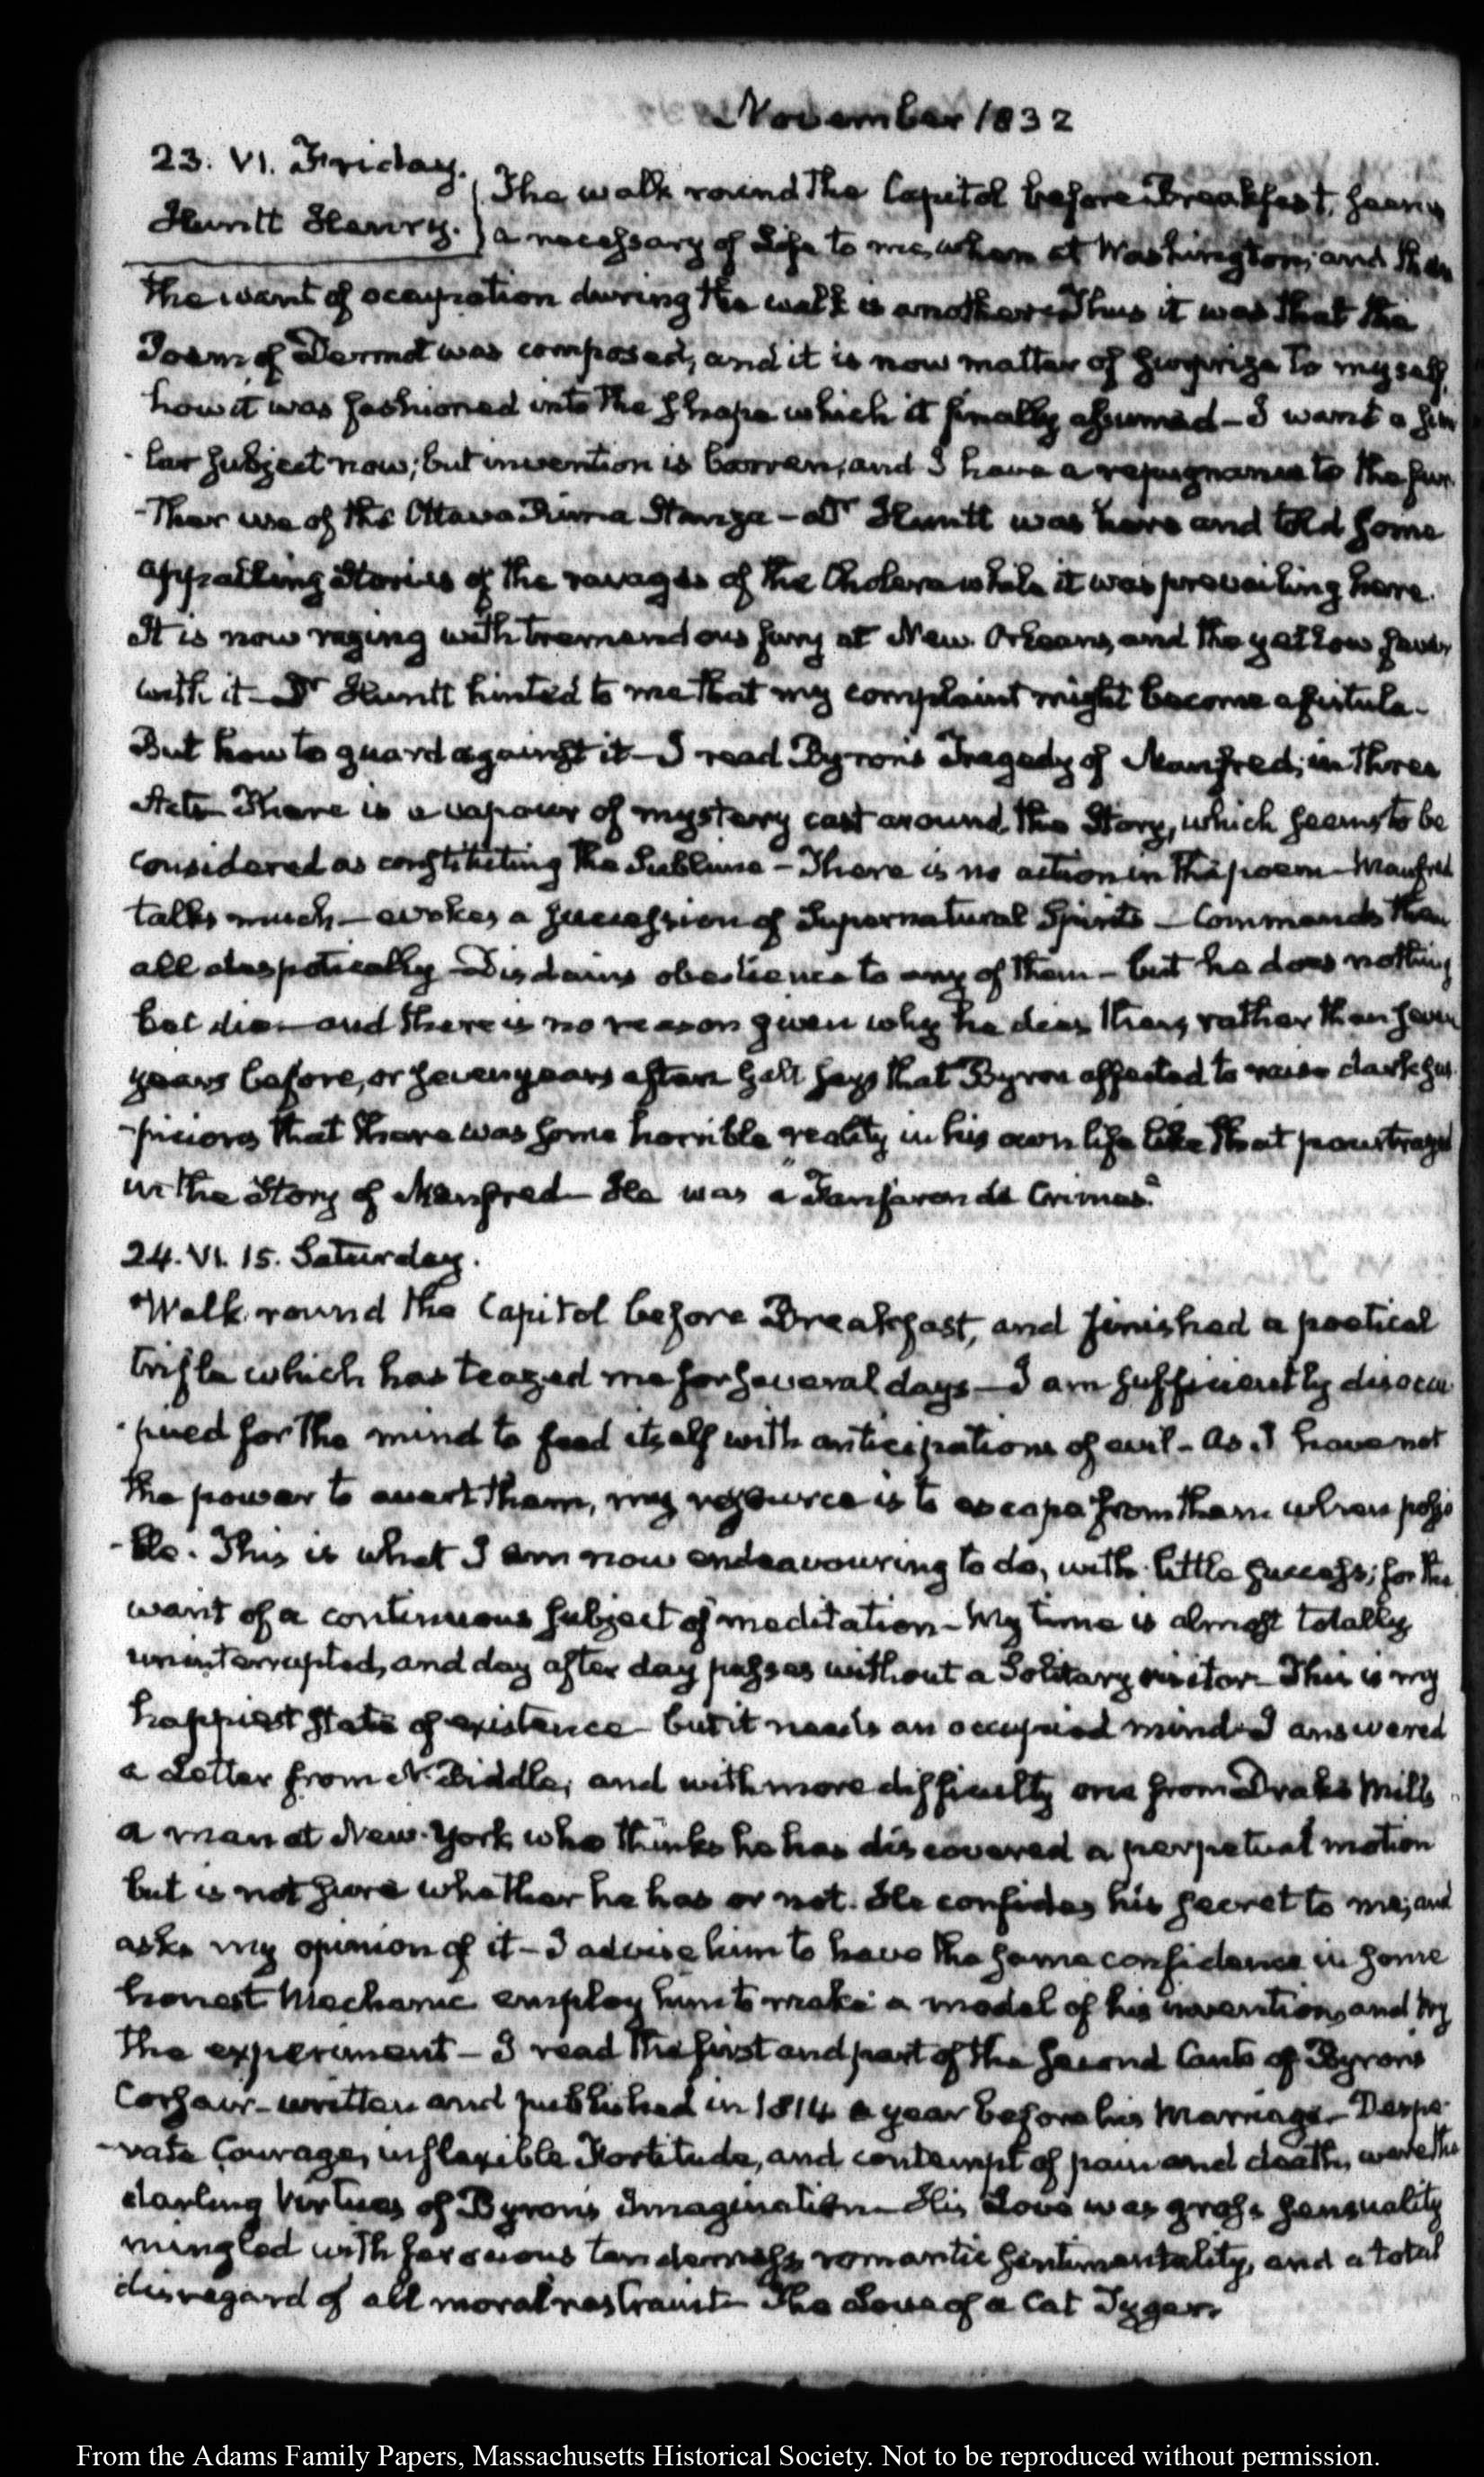 November 1832
23. VI. Friday.
Huntt Henry.
The walk round the Capitol before Breakfast, seems
a necessary of Life to me, when at Washington; and then
the want of occupation during the walk is another. Thus it was that the
Poem of Dermot was composed, and it is now matter of surprize to myself,
how it was fashioned into the shape which it finally assumed – I want a simi
-lar subject now; but invention is barren, and I have a repugnance to the fur
-ther use of the Ottava Rima Stanza – Dr Huntt was here and told some
appalling Stories of the ravages of the Cholera while it was prevailing here.
It is now raging with tremendous fury at New Orleans, and the yellow fever
with it – Dr Huntt hinted to me that my complaint might become a fistula –
But how to guard against it – I read Byron's Tragedy of Manfred; in three
Acts – There is a vapour of mystery cast around the Story, which seems to be
considered as constituting the Sublime – There is no action in the poem – Manfred
talks much – evokes a succession of Supernatural Spirits – Commands them
all despotically – Disdains obedience to any of them – but he does nothing
but die – and there is no reason given why he dies then, rather than seven
years before, or seven years after. Galt says that Byron affected to raise dark sus
-picions that there was some horrible reality in his own life like that pourtrayed
in the Story of Manfred – He was a "Fanfaron de Crimes."
24. VI. 15. Saturday.
Walk round the Capitol before Breakfast, and finished a poetical
trifle which has teazed me for several days – I am sufficiently disoccu
-pied for the mind to feed itself with anticipations of evil – As I have not
the power to avert them, my resource is to escape from them when possi
-ble. This is what I am now endeavouring to do, with little success; for the
want of a continuous subject of meditation – My time is almost totally
uninterrupted, and day after day passes without a Solitary visitor – This is my
happiest state of existence – but it needs an occupied mind – I answered
a Letter from N. Biddle, and with more difficulty one from Drake Mills
a man at New-York who thinks he has discovered a perpetual motion
but is not sure whether he has or not. He confides his secret to me; and
asks my opinion of it – I advise him to have the same confidence in some
honest Mechanic employ him to make a model of his invention, and try
the experiment – I read the first and part of the second Canto of Byron's
Corsair – written and published in 1814 a year before his Marriage – Despe
-rate Courage, inflexible Fortitude, and contempt of pain and death, were the
darling Virtues of Byron's Imagination – His Love was gross sensuality
mingled with ferocious tenderness, romantic sentimentality, and a total
disregard of all moral restraint – The Love of a Cat Tyger.
From the Adams Family Papers, Massachusetts Historical Society. Not to be reproduced without permission.